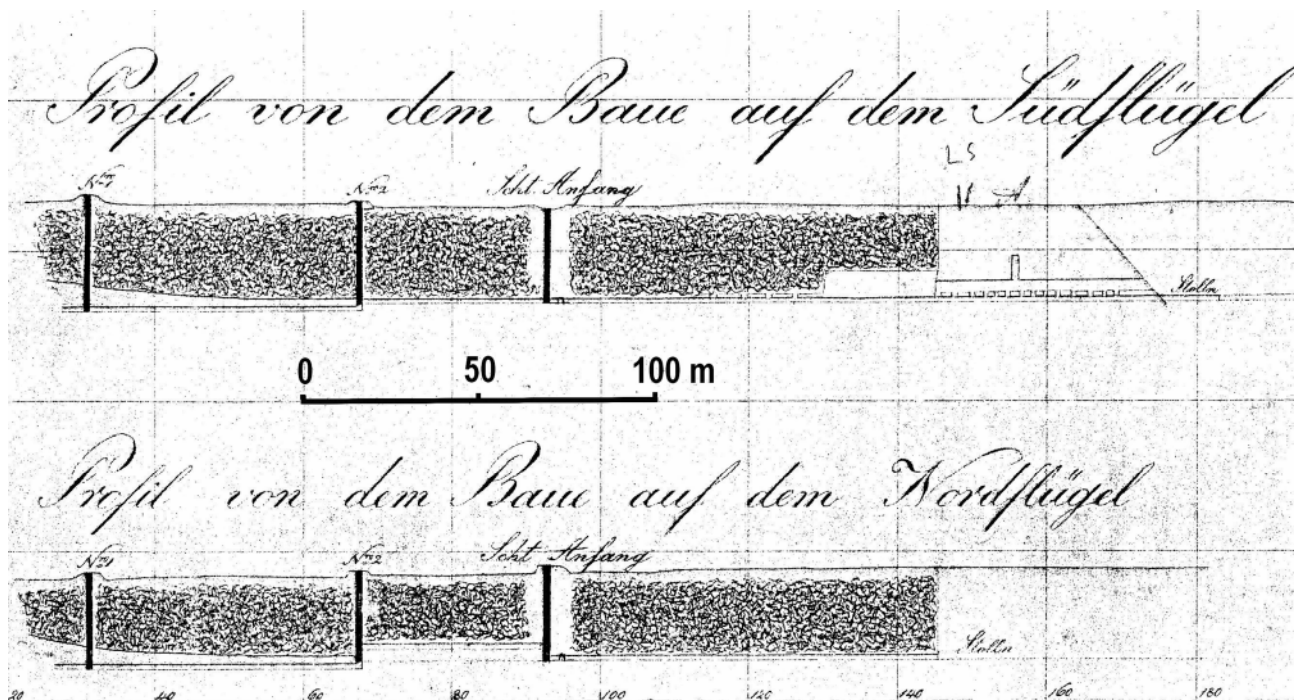 Profil von dem Baue auf dem Südflügel
LS
Nro 1 Nro 2 Scht. Anfang
Stolln
0 50 100 m
Profil von dem Baue auf dem Nordflügel
Nro 1 Nro 2 Scht Anfang
Stolln
20 40 60 80 100 120 140 160 180